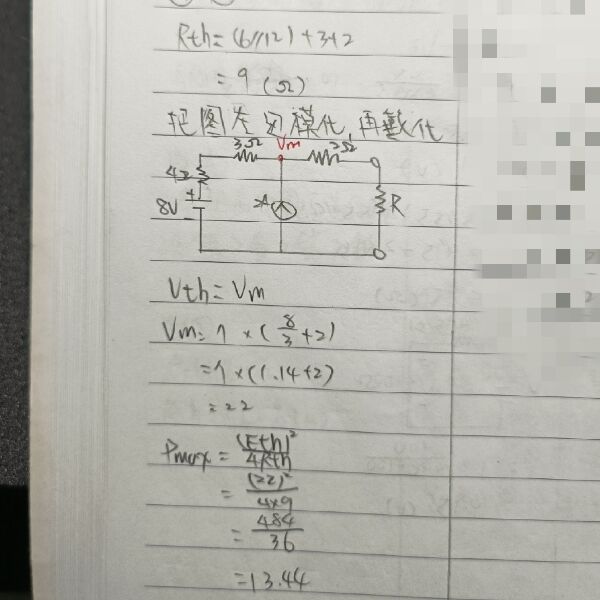 Rth = (6//12) + 3+2
= 9 (Ω)
把图左边模化,再戴化
3Ω Vm 2Ω
4Ω
8V R
Vth = Vm
Vm = 7 × (8/3 + 2)
= 7 × (1.14+2)
= 22
Pmax = (Eth)²/4Rth
= (22)²/4×9
= 484/36
= 13.44